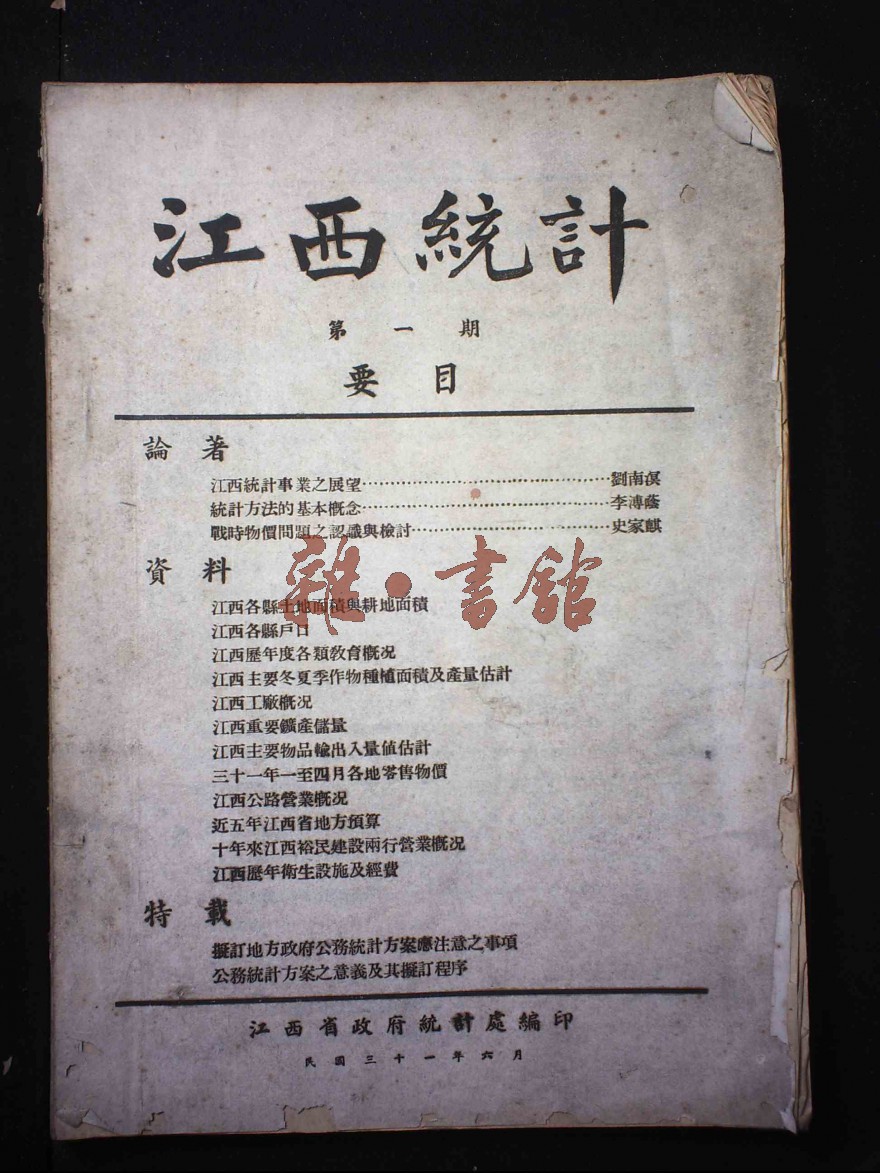 江西統計
第一期
要目
論著
江西統計事業之展望⋯⋯⋯⋯⋯⋯⋯⋯⋯⋯劉南溟
統計方法的基本概念⋯⋯⋯⋯⋯⋯⋯⋯⋯⋯李溥蔭
戰時物價問題之認識與檢討⋯⋯⋯⋯⋯⋯⋯⋯史家麒
資料
江西各縣土地面積與耕地面積
江西各縣戶口
江西歷年度各類教育概况
江西主要冬夏季作物種植面積及產量估計
江西工廠概况
江西重要鑛產儲量
江西主要物品輸出入量值估計
三十一年一至四月各地零售物價
江西公路營業概况
近五年江西省地方預算
十年來江西裕民建設兩行營業概况
江西歷年衛生設施及經費
特載
擬訂地方政府公務統計方案應注意之事項
公務統計方案之意義及其擬訂程序
江西省政府統計處編印
民國三十一年六月
雜·書館